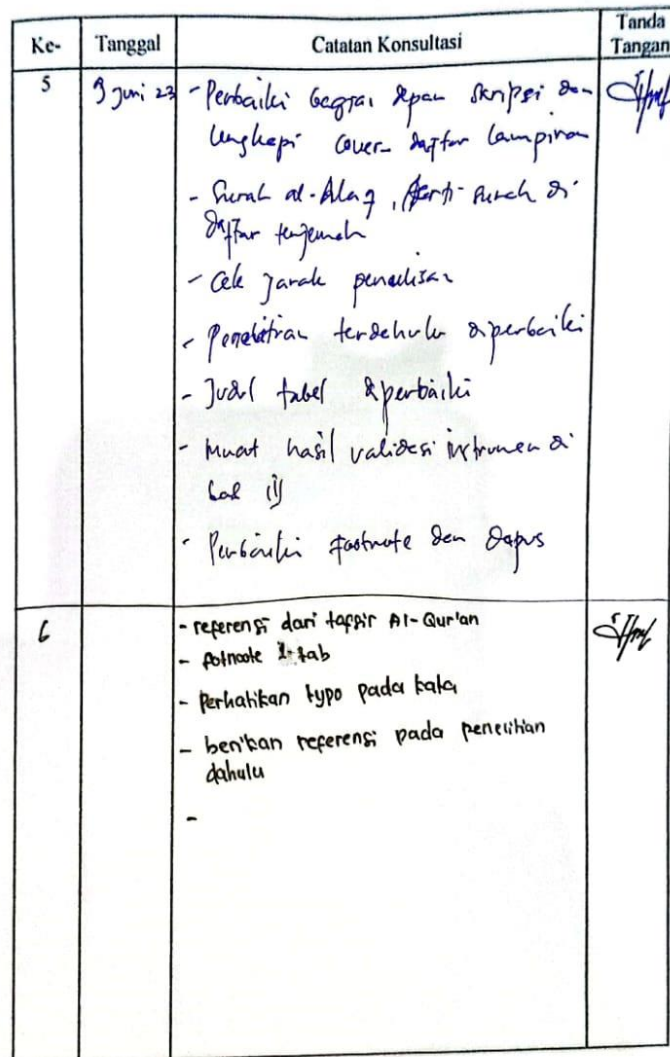 Ke- Tanggal Catatan Konsultasi Tanda Tangan
5 9 Juni 23 - Perbaiki bagian depan skripsi dan
lengkapi cover - daftar lampiran
- Surah al-Alaq, arti surah di
daftar terjemah
- Cek jarak penulisan
- Penelitian terdahulu diperbaiki
- Judul tabel diperbaiki
- Muat hasil validasi instrumen di
bab III
- Perbaiki footnote dan dapus
6 - referensi dari tafsir Al-Qur'an
- fotnoote 1 tab
- Perhatikan typo pada kata
- berikan referensi pada penelitian
dahulu
-